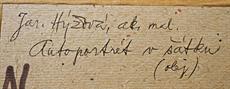 Jar. Hýzová, ak. mal.
Autoportrét v šátku
(olej)
N